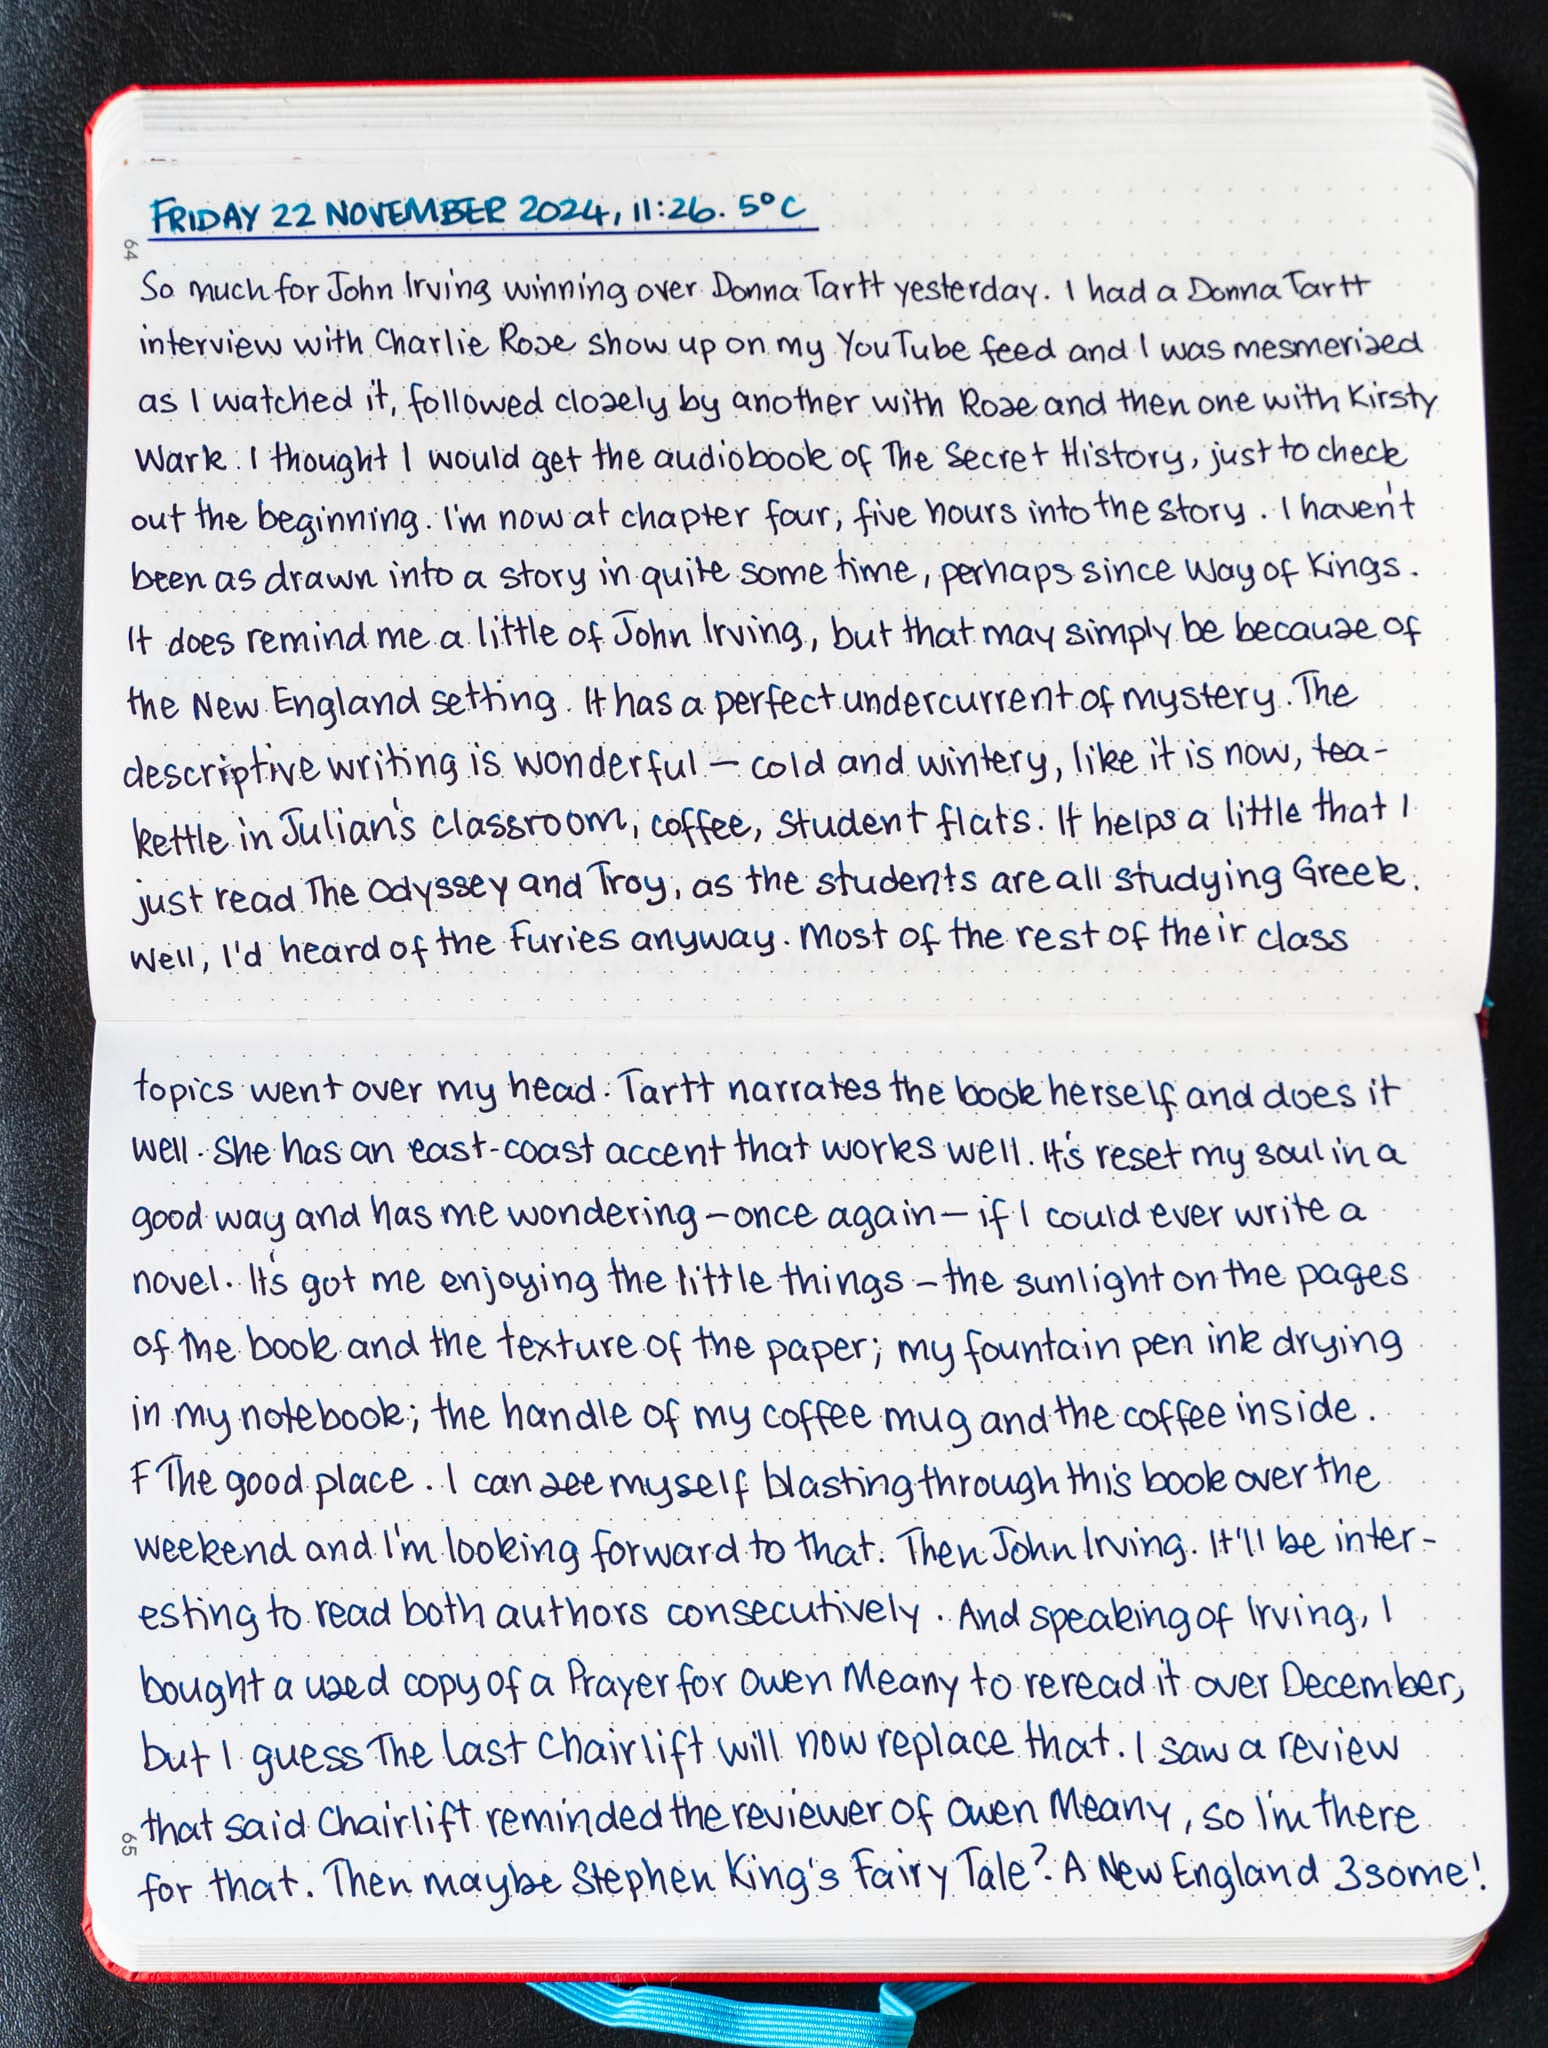 FRIDAY 22 NOVEMBER 2024, 11:26. 5°C
64
So much for John Irving winning over Donna Tartt yesterday. I had a Donna Tartt
interview with Charlie Rose show up on my YouTube feed and I was mesmerized
as I watched it, followed closely by another with Rose and then one with Kirsty
Wark. I thought I would get the audiobook of The Secret History, just to check
out the beginning. I'm now at chapter four, five hours into the story. I haven't
been as drawn into a story in quite some time, perhaps since Way of Kings.
It does remind me a little of John Irving, but that may simply be because of
the New England setting. It has a perfect undercurrent of mystery. The
descriptive writing is wonderful – cold and wintery, like it is now, tea-
kettle in Julian's classroom, coffee, student flats. It helps a little that I
just read The Odyssey and Troy, as the students are all studying Greek.
Well, I'd heard of the Furies anyway. Most of the rest of their class
topics went over my head. Tartt narrates the book herself and does it
well. She has an east-coast accent that works well. It's reset my soul in a
good way and has me wondering – once again – if I could ever write a
novel. It's got me enjoying the little things – the sunlight on the pages
of the book and the texture of the paper; my fountain pen ink drying
in my notebook; the handle of my coffee mug and the coffee inside.
F The good place. I can see myself blasting through this book over the
weekend and I'm looking forward to that. Then John Irving. It'll be inter-
esting to read both authors consecutively. And speaking of Irving, I
bought a used copy of a Prayer for Owen Meany to reread it over December,
but I guess The Last Chairlift will now replace that. I saw a review
that said Chairlift reminded the reviewer of Owen Meany, so I'm there
65
for that. Then maybe Stephen King's Fairy Tale? A New England 3some!